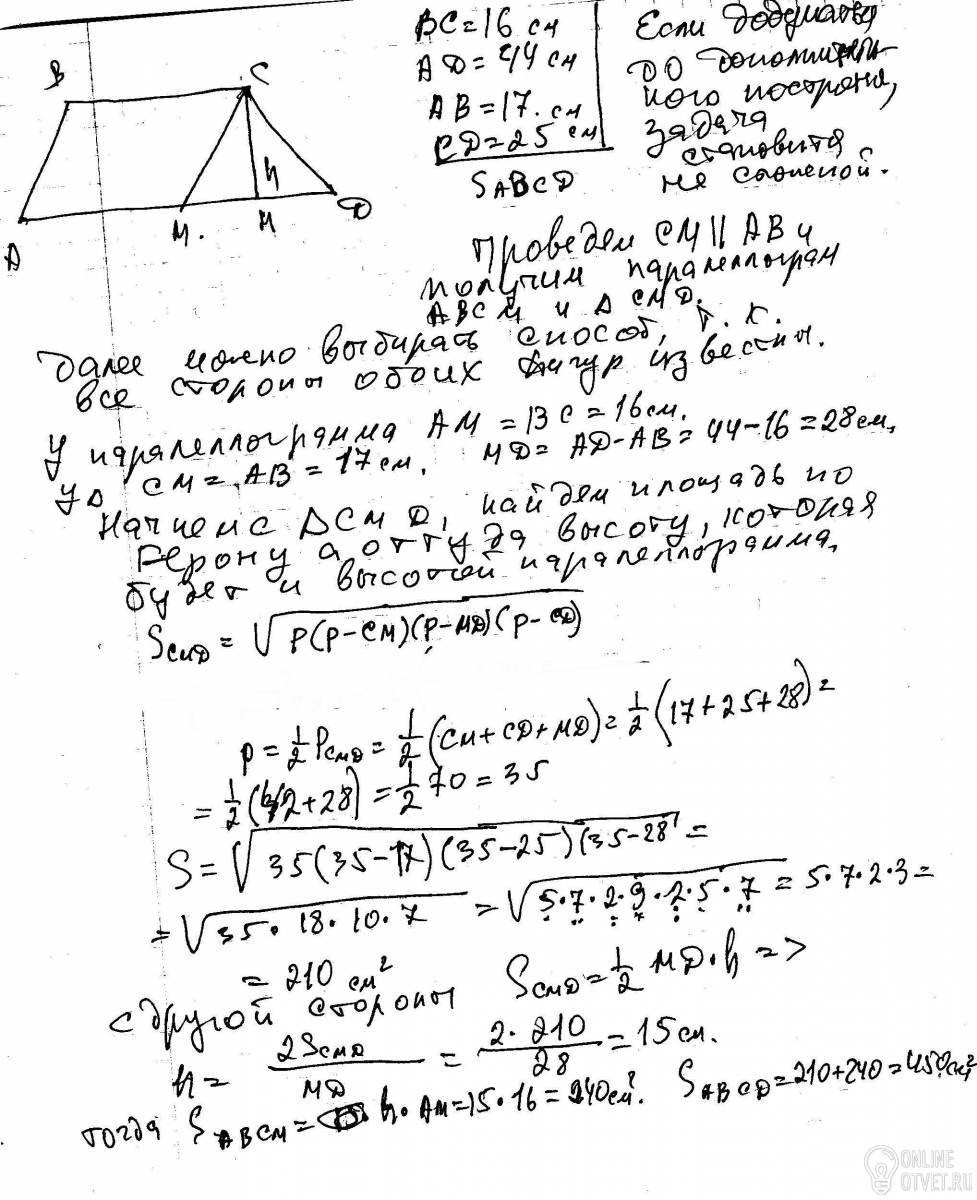 B
C
h
A
M.
H
D
BC=16 см
AD=44 см
AB=17. см
CD=25 см
SABCD
Если додуматься
до дополнитель-
ного построния,
задача
становится
не сложной.
Проведем CM || AB и
получим паралеллограм
ABCM и Δ CMD.
Далее можно выбирать способ, т. к.
все стороны обоих фигур известны.
У паралеллограмма AM = BC = 16 см.
У Δ CM = AB = 17 см. MD = AD-AB = 44-16 = 28 см,
Начнем с ΔCMD, найдем площадь по
Герону а оттуда высоту, которая
будет и высотой паралеллограмма,
SCMD = √p(p-CM)(p-MD)(p-CD)
p = 1/2 PCMD = 1/2 (CM+CD+MD) = 1/2 (17+25+28) =
= 1/2 (42+28) = 1/2 70 = 35
S = √35(35-17)(35-25)(35-28) =
= √35·18·10·7 = √5·7·2·9·2·5·7 = 5·7·2·3 =
= 210 см²
с другой стороны SCMD = 1/2 MD·h =>
h = 2SCMD/MD = 2·210/28 = 15 см.
тогда SABCM = h·AM = 15·16 = 240 см². SABCD = 210+240 = 450 см²
ONLINE
OTVET.RU